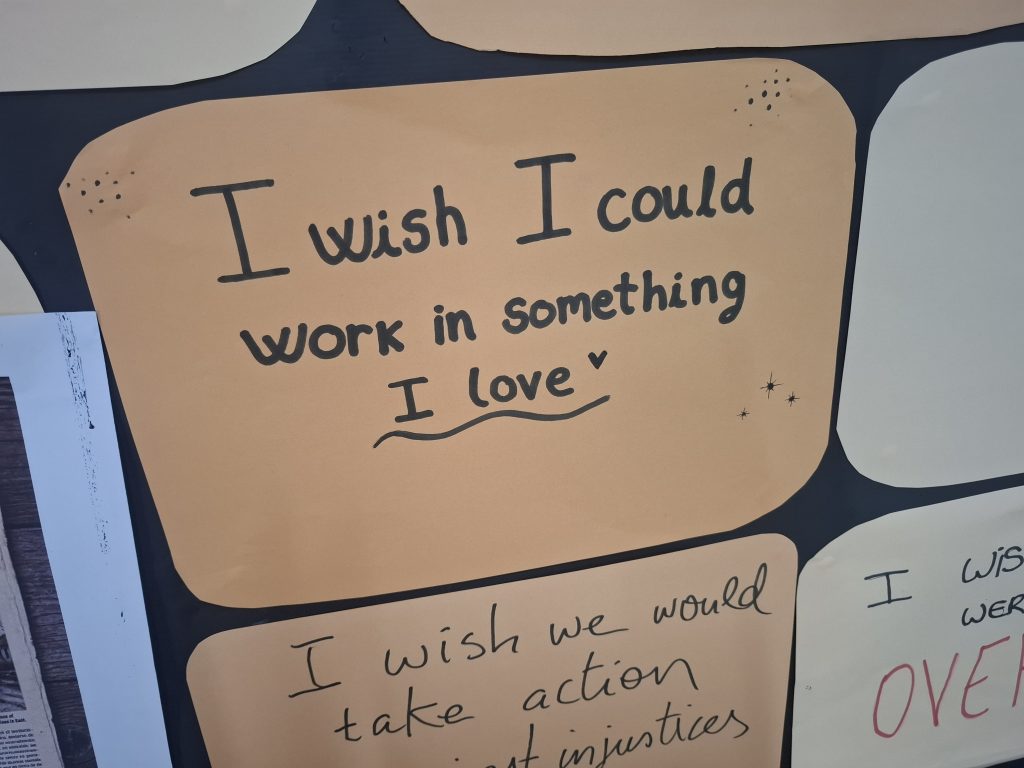 I wish I could
work in something
I love
I wish we would
take action
injustices
I